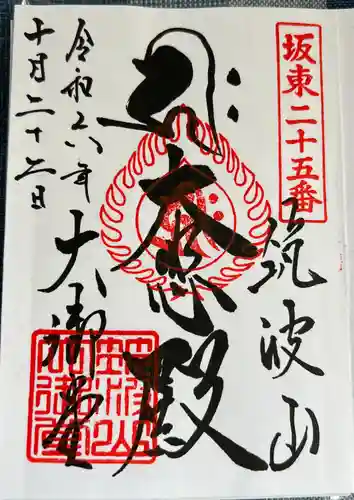 坂東二十五番
筑波山
大悲殿
大御堂
令和六年
十月二十二日